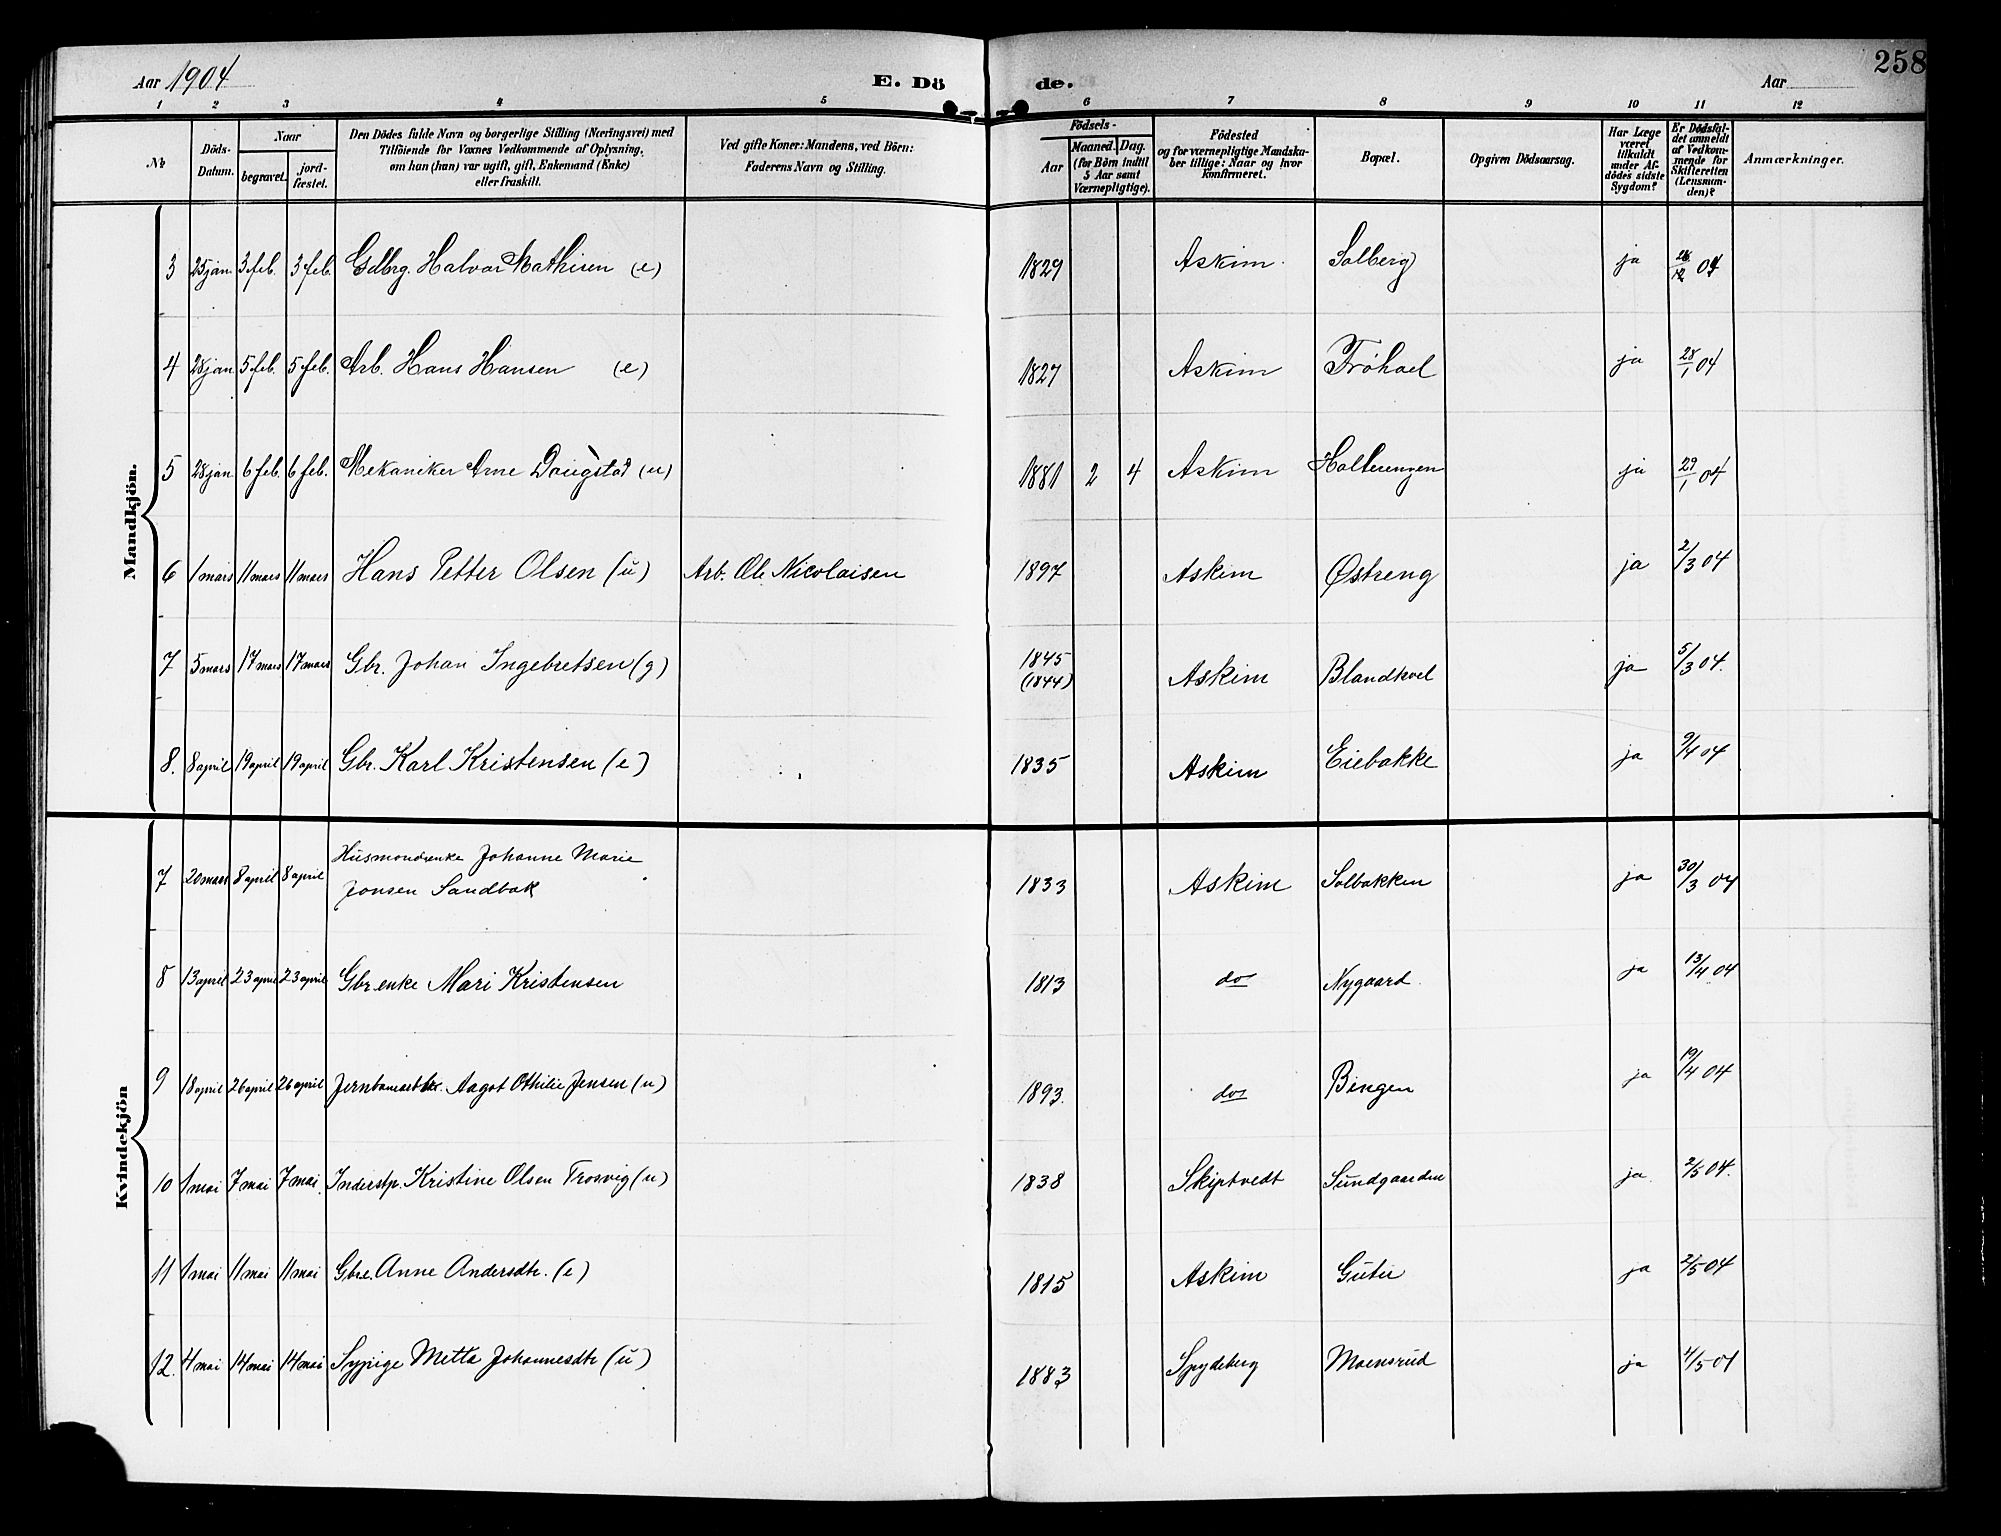 Aar 1904
E. Dö de.
Aar
258
1 2 3 4 5 6 7 8 9 10 11 12
№
Döds-
Datum.
Naar
begravet.
jord-
fæstet.
Den Dödes fulde Navn og borgerlige Stilling (Næringsvei) med
Tilföiende for Voxnes Vedkommende af Oplysning,
om han (hun) var ugift, gift, Enkemand (Enke)
eller fraskilt.
Ved gifte Koner: Mandens, ved Börn:
Faderens Navn og Stilling.
Födsels-
Aar
Maaned. Dag.
(for Börn indtil
5 Aar samt
Værnepligtige).
Födested
og for værnepligtige Mandska-
ber tillige: Naar og hvor
konfirmeret.
Bopæl.
Opgiven Dödsaarsag.
Har Læge
været
tilkaldt
under Af-
dödes sidste
Sygdom?
Er Dödsfal-
det anmeldt
af Vedkom-
mende for
Skifteretten
(Lensman-
den)?
Anmærkninger.
Mandkjön.
3 25 jan. 3 feb. 3 feb. Gdbrg. Halvor Mathisen (e) 1829 Askim. Solberg ja 04
4 28 jan 5 feb. 5 feb. Arb. Hans Hansen (e) 1827 Askim Fröhoel ja 28/1 04
5 28 jan 6 feb. 6 feb. Mekaniker Arne Daugstad (u) 1881 2 4 Askim Holterengen ja 29/1 04
6 1 mars 11 mars 11 mars Hans Petter Olsen (u) Arb. Ole Nicolaisen 1897 Askim Østreng ja 2/3 04
7 5 mars 17 mars 17 mars Gbr. Johan Ingebretsen (g) 1845 (1844) Askim Blandkvel ja 5/3 04.
8. 8 april 19 april 19 april Gbr. Karl Kristensen (e) 1835 Askim Eiebakke ja 9/4 04
Kvindekjön
7 20 mars 8 april 8 april Husmandsenke Johanne Marie
Jonsen Sandbak 1833 Askim Solbakken ja 30/3 04
8 13 april 23 april 23 april Gbr. enke Mari Kristensen 1813 do Nygaard. ja 13/4 04
9 18 april 26 april 26 april Aagot Othilie Jensen (u) 1893. do Bingen ja 19/4 04
10 1 mai 7 mai 7 mai Inderstp. Kristine Olsen Trosvig (u) 1838 Skiptvedt Sundgaarden ja. 2/5 04.
11 1 mai 11 mai 11 mai Gbre. Anne Andersdtr. (e) 1815 Askim Guter ja 2/5 04
12. 4 mai 14 mai 14 mai Sypige Metta Johannesdtr (u) 1883 Spydeberg Moensrud ja 4/5 04